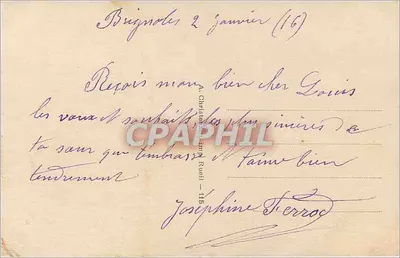 Brignoles 2 Janvier (16)
Reçois mon bien cher Louis
les voeux et souhaits les plus sincères de
ta soeur qui t'embrasse et t'aime bien
tendrement
Joséphine Ferrod
CPAPHIL
A. Christ Imp. Rueil — 115